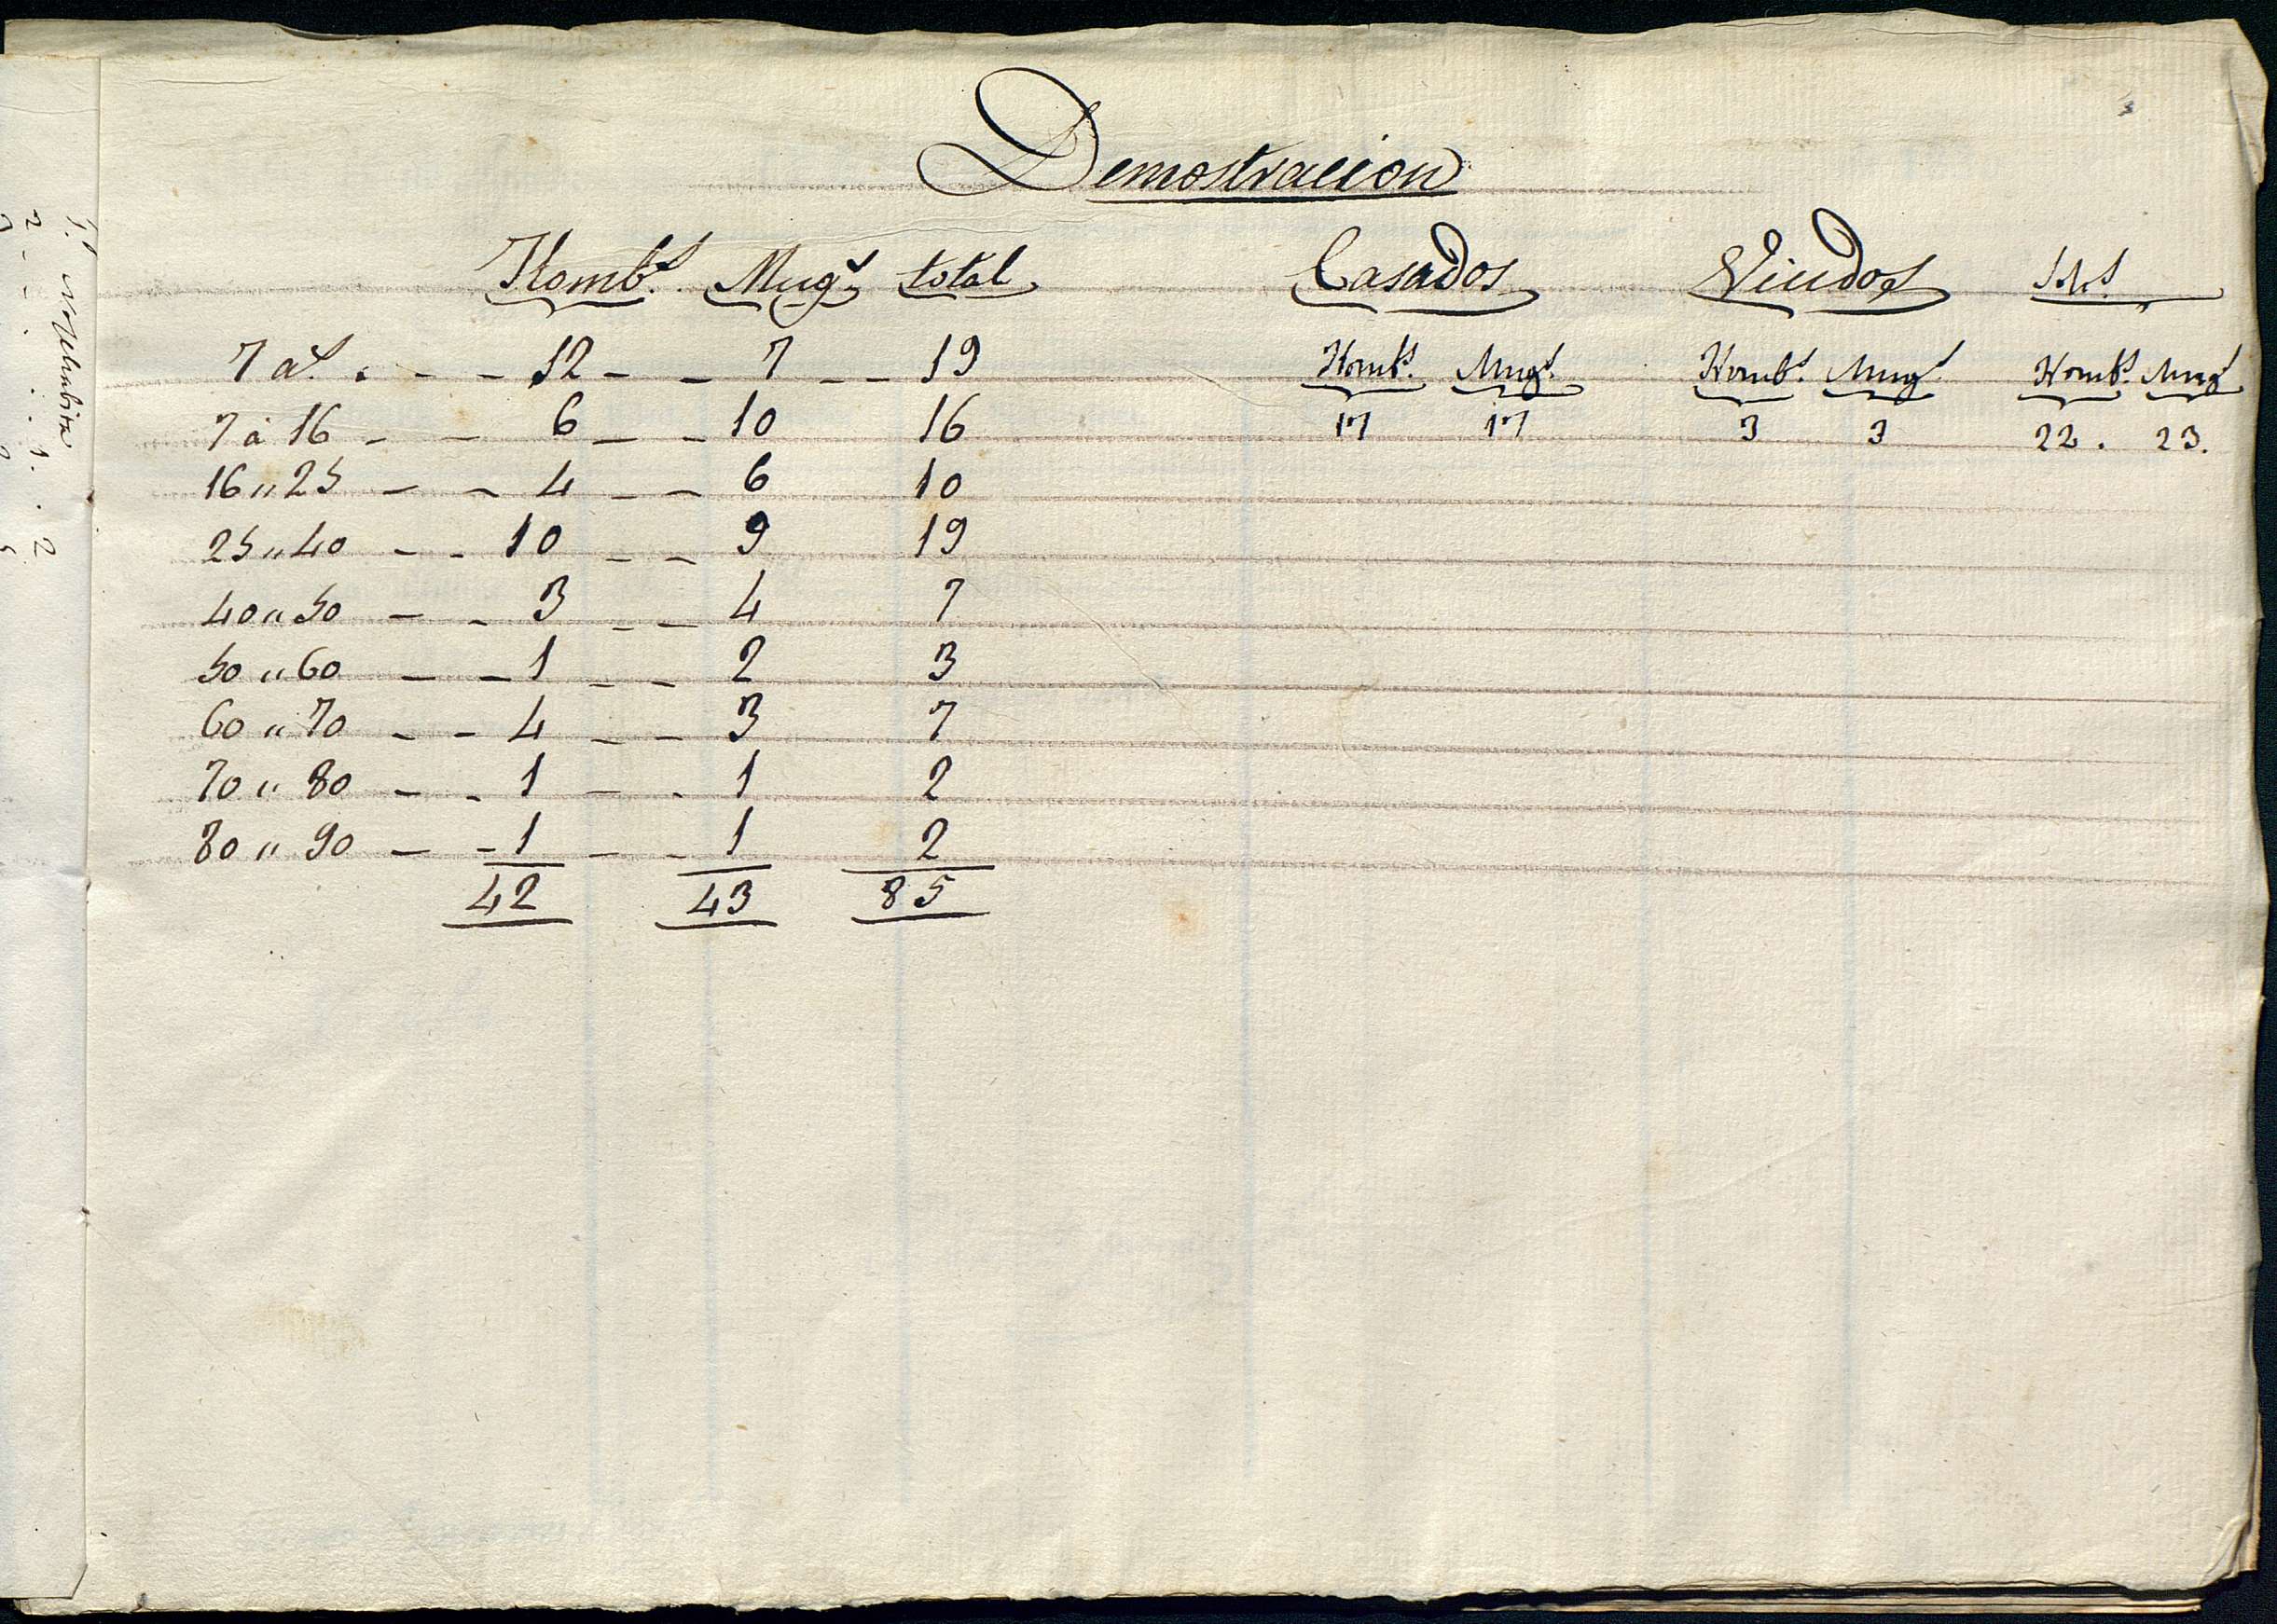 Demostracion
Hombs. Mugs. total Casados Viudos Sols.
7 as. 12 7 19 Hombs. Mugs. Hombs. Mugs. Hombs. Mugs.
7 á 16 6 10 16 17 17 3 3 22. 23.
16 " 25 4 6 10
25 " 40 10 9 19
40 " 50 3 4 7
50 " 60 1 2 3
60 " 70 4 3 7
70 " 80 1 1 2
80 " 90 1 1 2
42 43 85